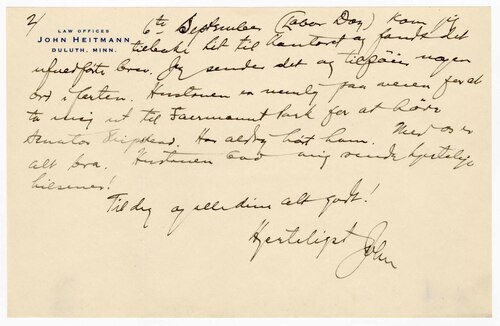 2/
LAW OFFICES
JOHN HEITMANN
DULUTH, MINN.
6th September (Labor Day) kom jeg
tilbake hit til kontoret og fandt det
brev. Jeg sender det og tilføier nogen
ord i farten. Konstonen er nemlig paa veien for at
ta mig ut til Fairmount Park for at høre
Senator Shipstead. Har aldrig hørt ham. Med os er
alt bra. bad mig sende hjertelige
hilsener!
Til dig og alle dine alt godt!
Hjerteligst John